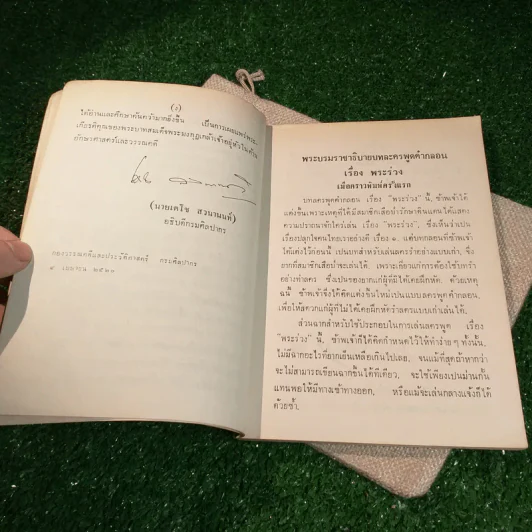 (๖)
ได้อ่านและศึกษาค้นคว้ามากยิ่งขึ้น เป็นการเผยแพร่พระ
เกียรติคุณของพระบาทสมเด็จพระมงกุฎเกล้าเจ้าอยู่หัวในด้าน
อักษรศาสตร์และวรรณคดี
(นายเดโช สวนานนท์)
อธิบดีกรมศิลปากร
กองวรรณคดีและประวัติศาสตร์ กรมศิลปากร
เมษายน ๒๕๒๓
พระบรมราชาธิบายบทละครพูดคำกลอน
เรื่อง พระร่วง
เมื่อคราวพิมพ์ครั้งแรก
บทละครพูดคำกลอน เรื่อง "พระร่วง" นี้, ข้าพเจ้าได้
แต่งขึ้นเพราะเหตุที่ได้มีสมาชิกเสือป่ารักษาดินแดนได้แสดง
ความปรารถนาอันใคร่เล่น เรื่อง "พระร่วง", ซึ่งเห็นว่าเปน
เรื่องปลุกใจคนไทยเราอย่างดี เรื่อง ๑. แต่บทกลอนที่ข้าพเจ้า
ได้แต่งไว้ก่อนนี้ เปนบทสำหรับเล่นละครรำอย่างแบบเก่า, ซึ่ง
ยากที่สมาชิกเสือป่าจะเล่นได้, เพราะเกี่ยวแก่การต้องใช้บทรำ
อย่างท่าละคร ซึ่งเปนของยากแก่ผู้ที่มิได้เคยฝึกหัด. ด้วยเหตุ
ฉนี้ ข้าพเจ้าจึงได้คิดแต่งขึ้นใหม่เปนแบบละครพูดคำกลอน,
เพื่อให้สดวกแก่ผู้ที่ไม่ได้เคยฝึกหัดรำละครแบบเก่าเล่นได้.
ส่วนฉากสำหรับใช้ประกอบในการเล่นละครพูด เรื่อง
"พระร่วง" นี้, ข้าพเจ้าก็ได้คิดกำหนดไว้ให้ทำง่าย ๆ ทั้งนั้น,
ไม่มีฉากอะไรที่ยากเย็นเหลือเกินไปเลย, จนแม้ที่สุดถ้าหากว่า
จะไม่สามารถเขียนฉากขึ้นได้ทีเดียว, จะใช้เพียงเปนม่านกั้น
แทนพอให้มีทางเข้าทางออก, หรือแม้จะเล่นกลางแจ้งก็ได้
ด้วยซ้ำ.